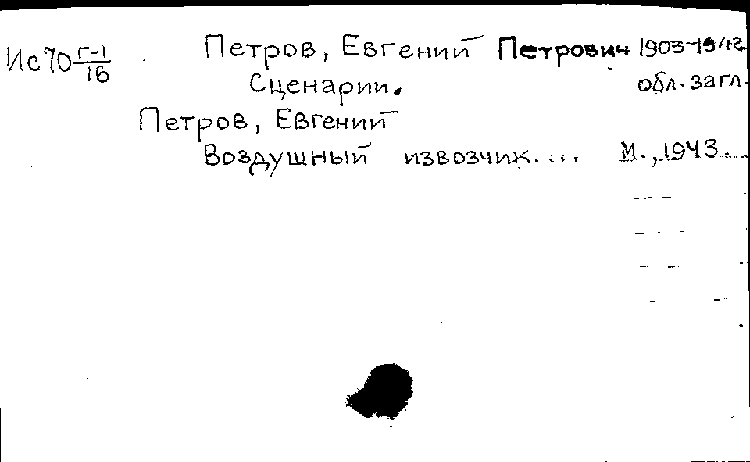 Ис70 Г-1/16 Петров, Евгений Петрович 1903-1942
Сценарии. обл. загл.
Петров, Евгений
Воздушный извозчик.... М., 1943.